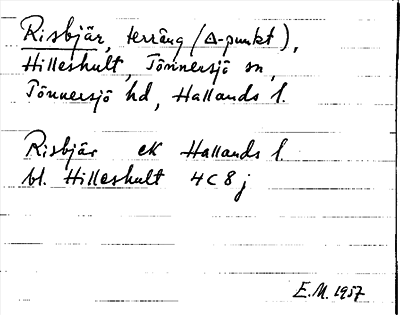 Risbjär, terräng (Δ-punkt),
Hilleshult, Tönnersjö sn,
Tönnersjö hd, Hallands l.
Risbjär ek Hallands l.
bl. Hilleshult 4C8j
E.M. 1957